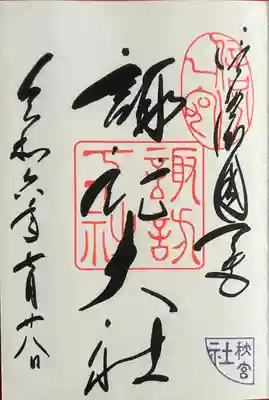 信濃國一宮
諏訪大社
諏訪大社
令和六年
月廿八日
秋宮
社